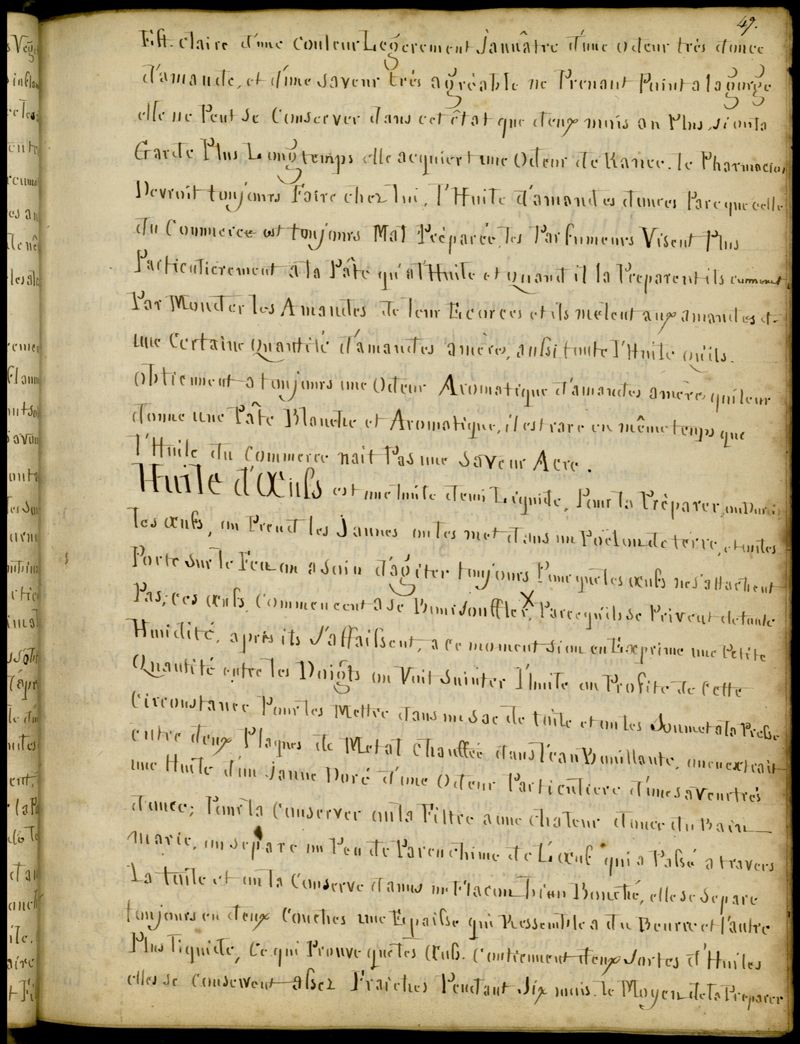 49.
Est. claire d'une couleur Legerement Jaunâtre d'une odeur très douce
d'amande, et d'une saveur très agréable ne Prenant Point a la gorge
elle ne Peut se Conserver dans cet état que deux mois au Plus, si on la
Garde Plus Longtemps elle acquiert une Odeur de Rance. le Pharmacien
Devroit toujours Faire chez lui, l'Huile d'amandes douces Parceque celle
du Commerce est toujours Mal Préparée, les Parfumeurs Visent Plus
Particulierement a la Pâte qu'a l'Huile et Quand il la Preparent ils
Par Monder les Amandes de leur Ecorces et ils mêlent aux amandes
une Certaine Quantité d'amandes amère, aussi toute l'Huile qu'ils
obtiennent a toujours une Odeur Aromatique d'amandes amère, qui leur
donne une Pâte Blanche et Aromatique, il est rare en même temps que
l'Huile du Commerce nait Pas une saveur Acre.
Huile d'Œufs est une huile demi Liquide, Pour la Préparer,
les œufs, on Prend les Jaunes on les met dans un Poëlon de terre, et on les
Porte sur le Feu on a soin d'agiter toujours Pour que les œufs ne s'attachent
Pas, ces œufs, Commencent a se Boursouffler, Parcequ'ils se Privent de toute
Humidité, après ils s'affaissent, a ce moment si on en Exprime une Petite
Quantité entre les Doigts on Voit suinter l'huile on Profite de Cette
Circonstance Pour les Mettre dans un sac de toile et on les soumet a la Presse
entre deux Plaques de Metal Chauffée dans l'eau Bouillante, on en extrait
une Huile d'un Jaune Doré d'une Odeur Particuliere d'une saveur très
douce; Pour la Conserver on la Filtre a une chaleur douce du Bain
Marie, on separe un Peu de Parenchime de L'œuf qui a Passé a travers
La toile et on la Conserve dans un Flacon bien Bouché, elle se Separe
toujours en deux Couches une Epaisse qui Ressemble a du Beurre et l'autre
Plus liquide, Ce qui Prouve que les Œufs. Contiennent deux sortes d'Huiles
elles se Conservent assez Fraiches Pendant Six mois. le Moyen de la Preparer